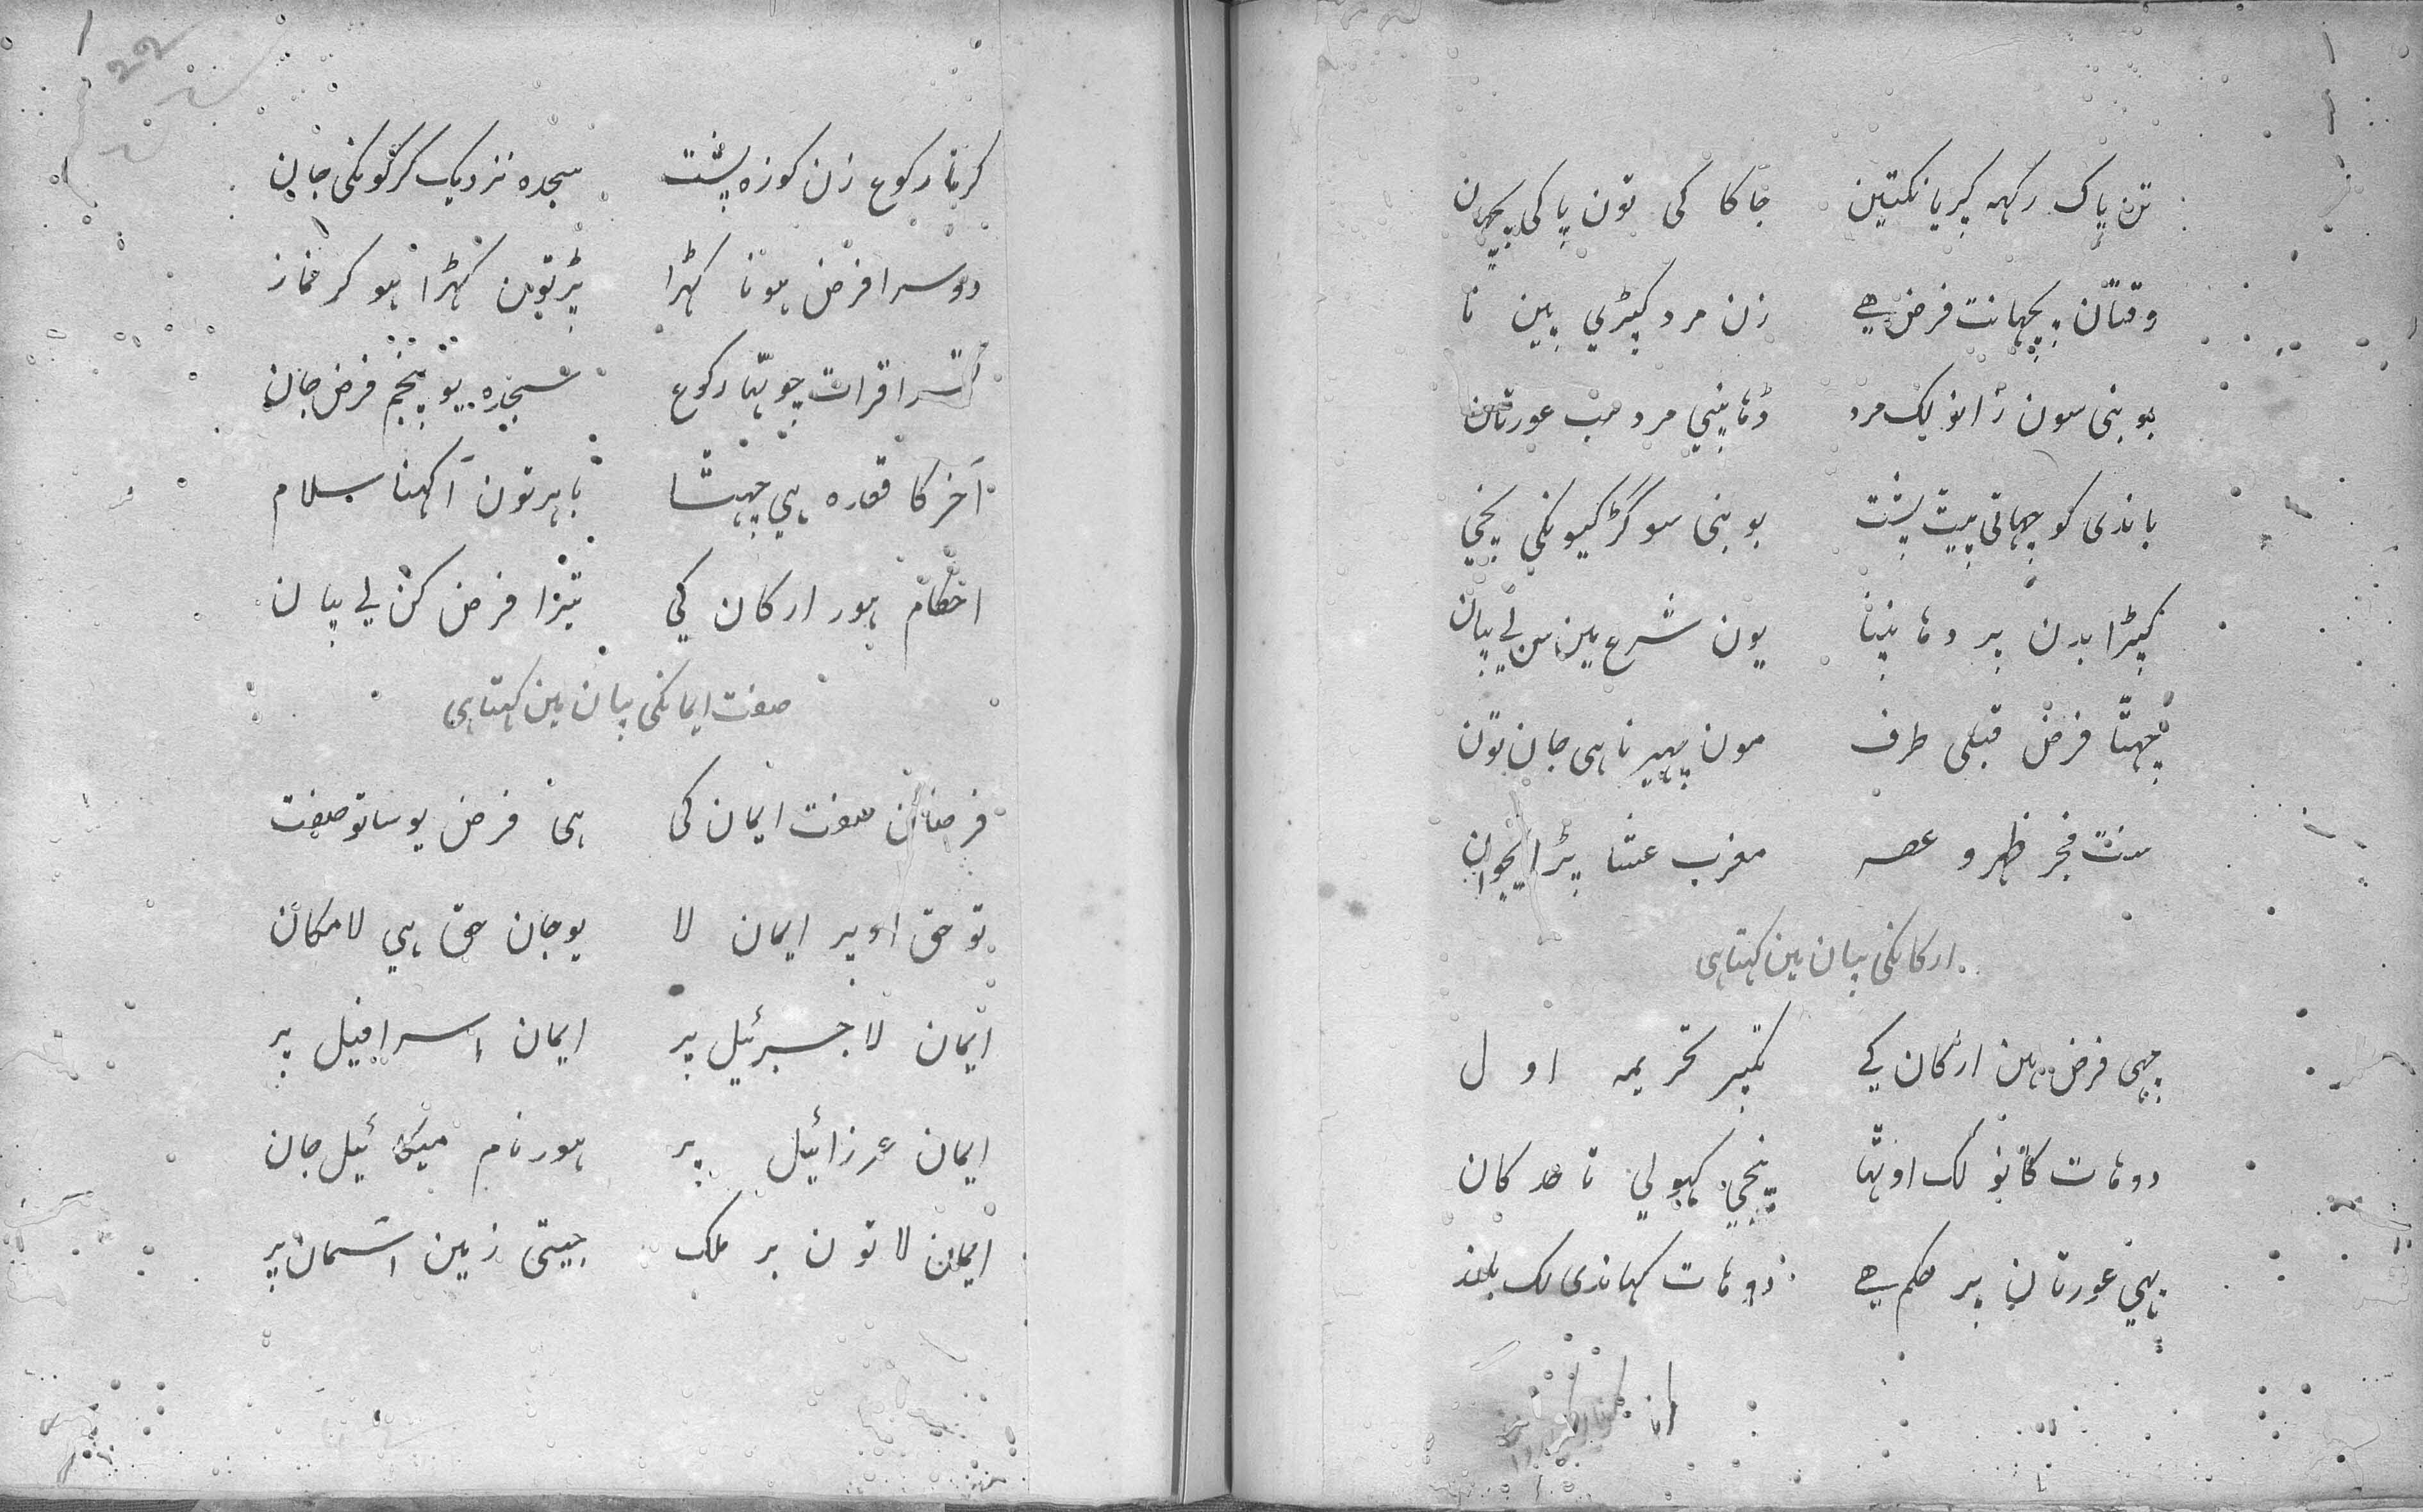 تن پاک رکہہ کپریانکتین جاکا کی تون پاکی پچہان
وقتان پچہانت فرض ہے زن مرد کپڑي پین نا
بوبنی سون زانو لک مرد ڈہانپني مرد سب عورتان
باندی کو چہاتی پیٹ پشت بوبنی سو گڑکیونکي نچي
کپڑا بدن پر دہانپنا یون شرع مین سن لے بیان
چہٹا فرض قبلی طرف مون پہیرنا ہی جان تون
سنت فجر ظہر و عصر مغرب عشا پڑ ایجوان
ارکانکی بیان مین کہتا ہی
چہی فرض ہین ارکان کے تکبیر تحریمہ اول
دوہات کانو لک اوٹہا پنجي کہولي تا حد کان
نہني عورتان پر حکم ہے دوہات کہاندی لک بلند
کرنا رکوع زن کوزہ پشت سجدہ نزدیک کر گونکی جان
دوسرا فرض ہونا کہڑا پڑ تون کہڑا ہو کر نماز
تسرا قرات چوتہا رکوع سجدہ یو پنجم فرض جان
آخر کا قعدہ ہي چہٹا باہر تون آ کہنا سلام
احکام ہور ارکان کي تیرا فرض سن لے بیان
صفت ایمانکی بیان مین کہتا ہی
فرضان صفت ایمان کی ہی فرض یو ساتو صفت
تو حق اوپر ایمان لا یو جان حق ہي لامکان
ایمان لا جبرئیل پر ایمان اسرافیل پر
ایمان عزرائیل پر ہور نام میکائیل جان
ایمان لا تون بر ملک جیتی زمین آسمان پر